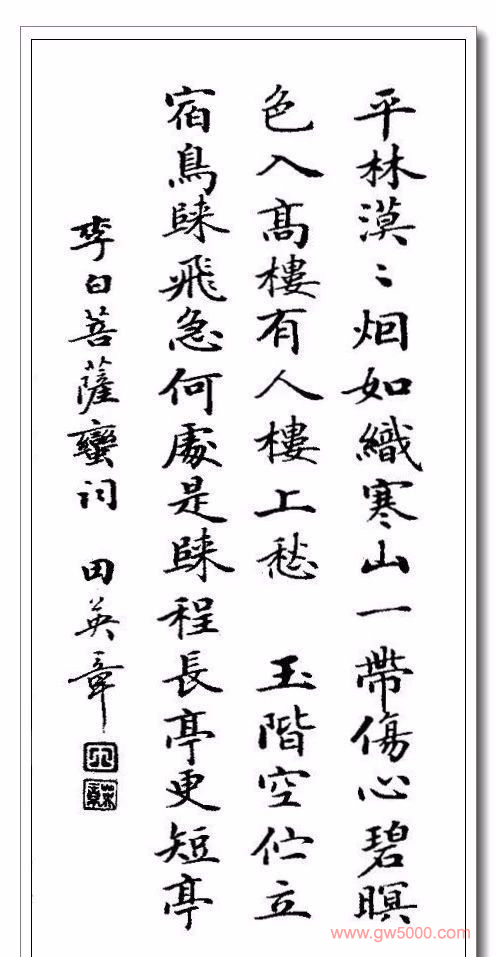 平林漠〻烟如織寒山一帶傷心碧暝
色入髙樓有人樓上愁 玉階空伫立
宿鳥歸飛急何處是歸程長亭更短亭
李白菩薩蠻詞 田英章
www.gw5000.com